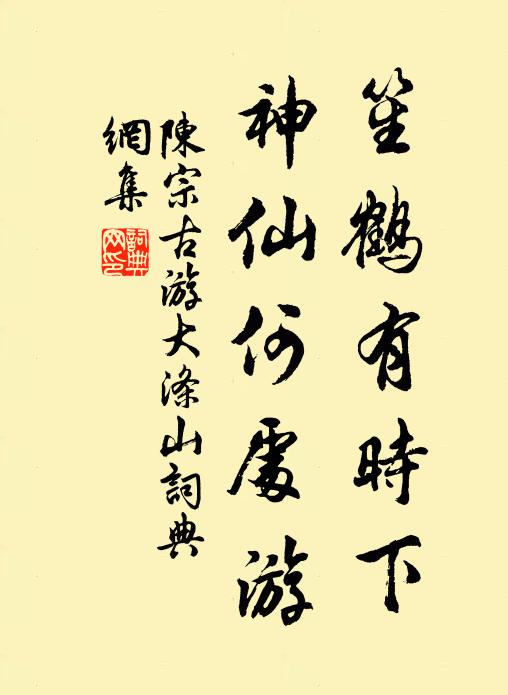 笙鶴有時下
神仙何處游
陳宗古游大滌山詞典
網集
詞典网印